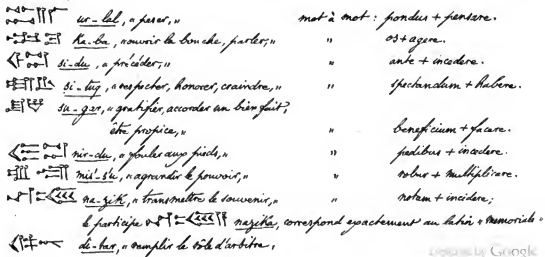 ur-lal, "peser," mot à mot : pondus + pensare.
Ka-ba, "ouvrir la bouche, parler," " os + agere.
si-du, "précéder," " ante + incedere.
si-tug, "respecter, honorer, craindre," " spectandum + habere.
su-gar, "gratifier, accorder un bienfait,
être propice," " beneficium + facere.
nir-du, "fouler aux pieds," " pedibus + incedere.
mis'-s'u, "agrandir le pouvoir," " robur + multiplicare.
na-zik, "transmettre le souvenir," " notam + incidere;
le participe nazika, correspond exactement au latin "memoriale"
di-bar, "remplir le rôle d'arbitre,
Google